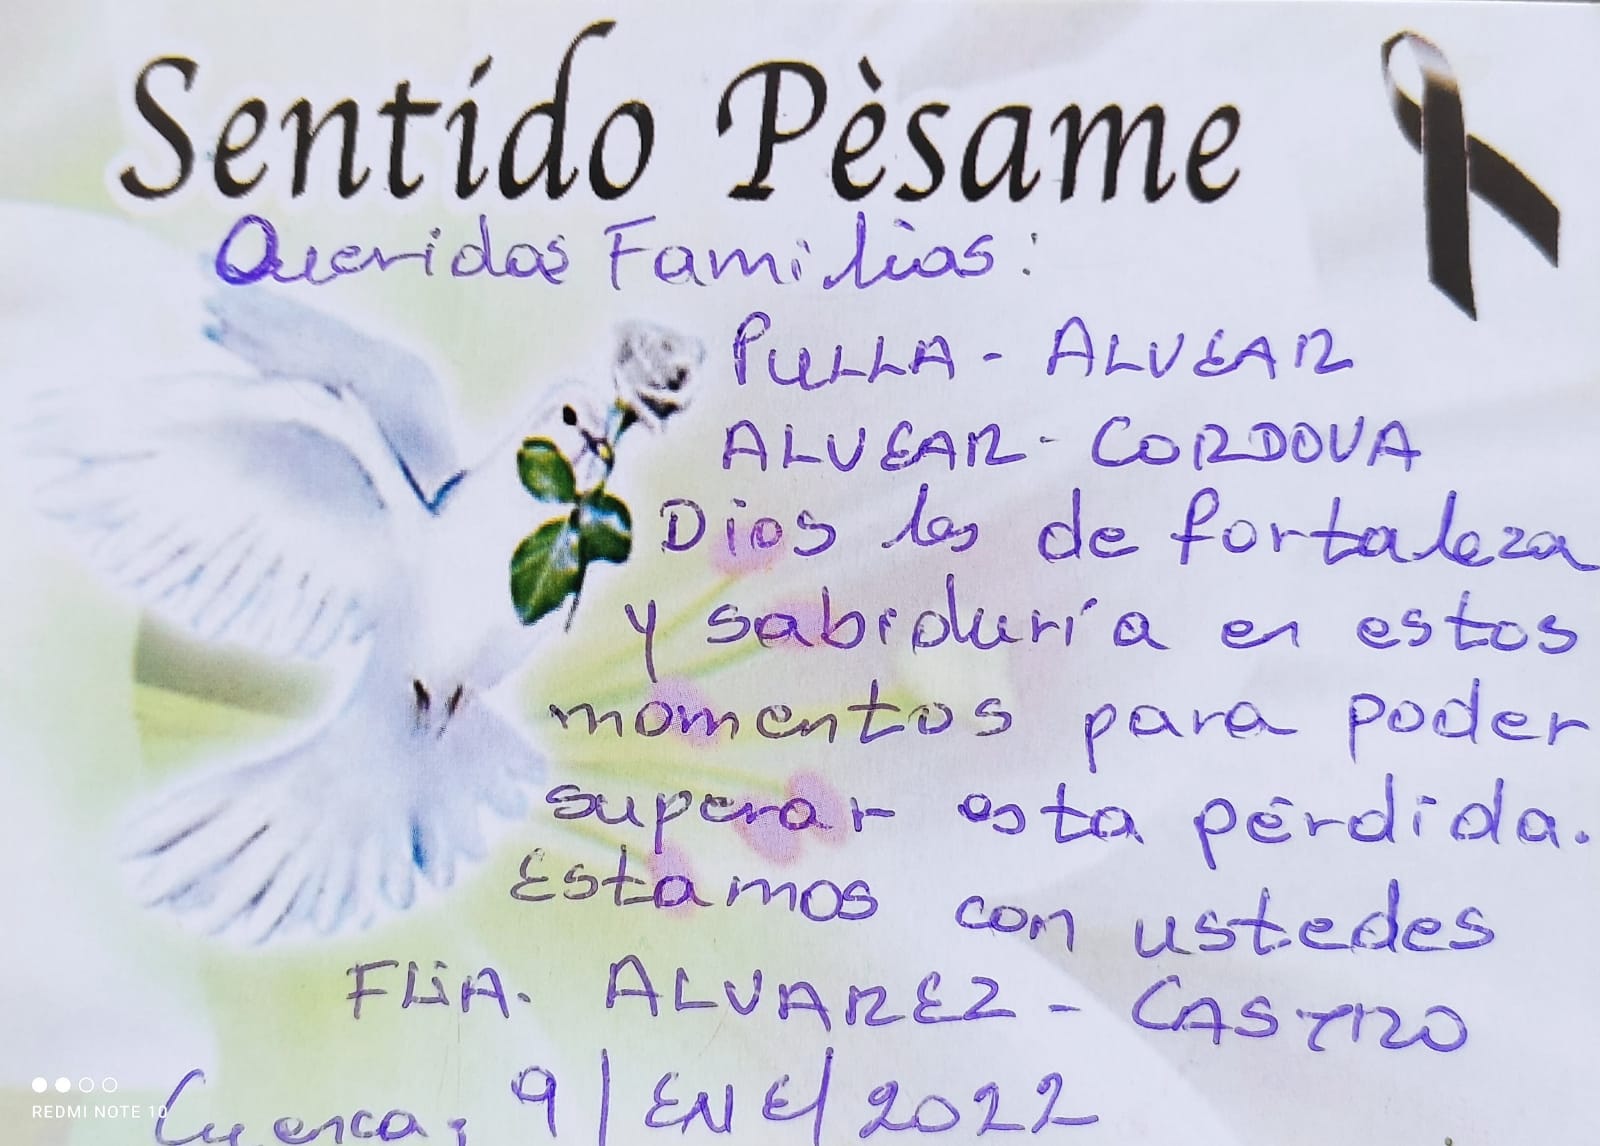 Sentido Pèsame
Queridas Familias:
PULLA - ALVEAR
ALVEAR - CORDOVA
Dios les de fortaleza
y sabiduría en estos
momentos para poder
superar esta pérdida.
Estamos con ustedes
FLIA. ALVAREZ - CASTRO
Cuenca, 9/ENE/2022
REDMI NOTE 10